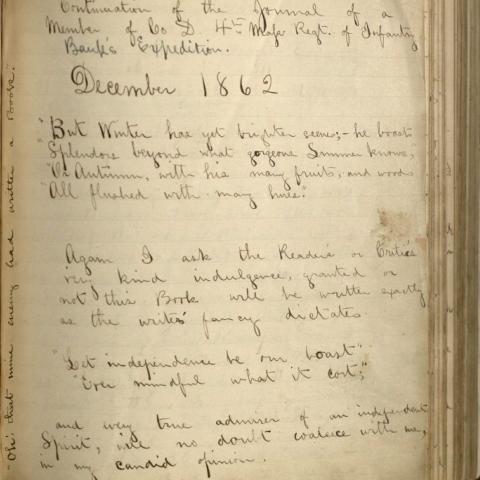 Continuation of the Journal of a
Member of Co D 4th Mass Regt. of Infantry
Bank's Expedition.
December 1862
"But Winter has yet brighter scenes,—he boasts
"Splendors beyond what gorgeous Summer knows,"
"Or Autumn, with his many fruits, and woods
"All flushed with many hues."
Again I ask the Readers or Critics
very kind indulgence, granted or
not this Book will be written exactly
as the writer's fancy dictates.
"Let independence be our boast"
"Ever mindful what it cost;"
and every true admirer of an independent
Spirit, will no doubt coalesce with me,
in my candid opinion.
"Oh! that mine enemy had written a Book."